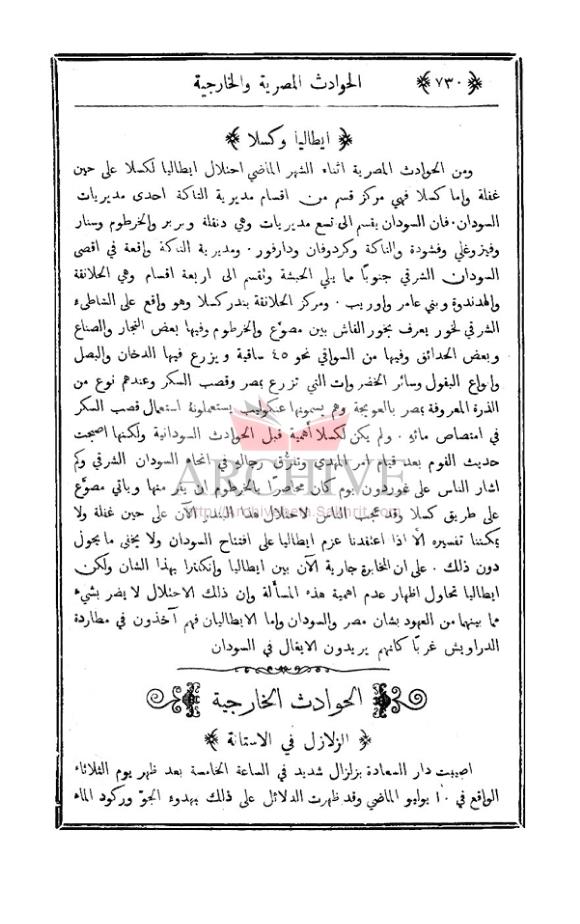 ﴿٧٣٠﴾ الحوادث المصرية والخارجية
﴿ ايطاليا وكسلا ﴾
ومن الحوادث المصرية اثناء الشهر الماضي احتلال ايطاليا لكسلا على حين
غفلة واما كسلا فهي مركز قسم من اقسام مديرية التاكة احدى مديريات
السودان . فان السودان يقسم الى تسع مديريات وهي دنقلة وبربر والخرطوم وسنار
وفيزوغلي وفشودة والتاكة وكردوفان ودارفور . ومديرية التاكة واقعة في اقصى
السودان الشرقي جنوبًا مما يلي الحبشة وتقسم الى اربعة اقسام وهي الحلانقة
والهدندوة وبني عامر واوريب . ومركز الحلانقة بندر كسلا وهو واقع على الشاطىء
الشرقي لخور يعرف بخور القاش بين مصوَّع والخرطوم وفيها بعض التجار والصناع
وبعض الحدائق وفيها من السواقي نحو ٤٥ ساقية ويزرع فيها الدخان والبصل
وانواع البقول وسائر الخضراوات التي تزرع بمصر وقصب السكر وعندهم نوع من
الذرة المعروفة بمصر بالعويجة وهم يسمونها عنكوليب يستعملونه استعمال قصب السكر
في امتصاص مائهِ . ولم يكن لكسلا أهمية قبل الحوادث السودانية ولكنها اصبحت
حديث القوم بعد قيام امر المهدي وتفرُّق رجاله في انحاء السودان الشرقي وكم
اشار الناس على غوردون يوم كان محاصرًا بالخرطوم ان يفر منها وياتي مصوَّع
على طريق كسلا وقد عجب الناس لاحتلال هذا البندر الآن على حين غفلة ولا
يمكننا تفسيره الَّا اذا اعتقدنا عزم ايطاليا على افتتاح السودان ولا يخفى ما يحول
دون ذلك . على ان المخابرة جارية الآن بين ايطاليا وانكلترا بهذا الشان ولكن
ايطاليا تحاول اظهار عدم اهمية هذه المسألة وإن ذلك الاحتلال لا يضر بشيء
مما بينهما من العهود بشان مصر والسودان واما الايطاليان فهم آخذون في مطاردة
الدراويش غربًا كانهم يريدون الايغال في السودان
الحوادث الخارجية
﴿ الزلازل في الاستانة ﴾
اصيبت دار السعادة بزلزال شديد في الساعة الخامسة بعد ظهر يوم الثلاثاء
الواقع في ١٠ يوليو الماضي وقد ظهرت الدلائل على ذلك بهدوء الجوّ وركود الماء
ARCHIVE